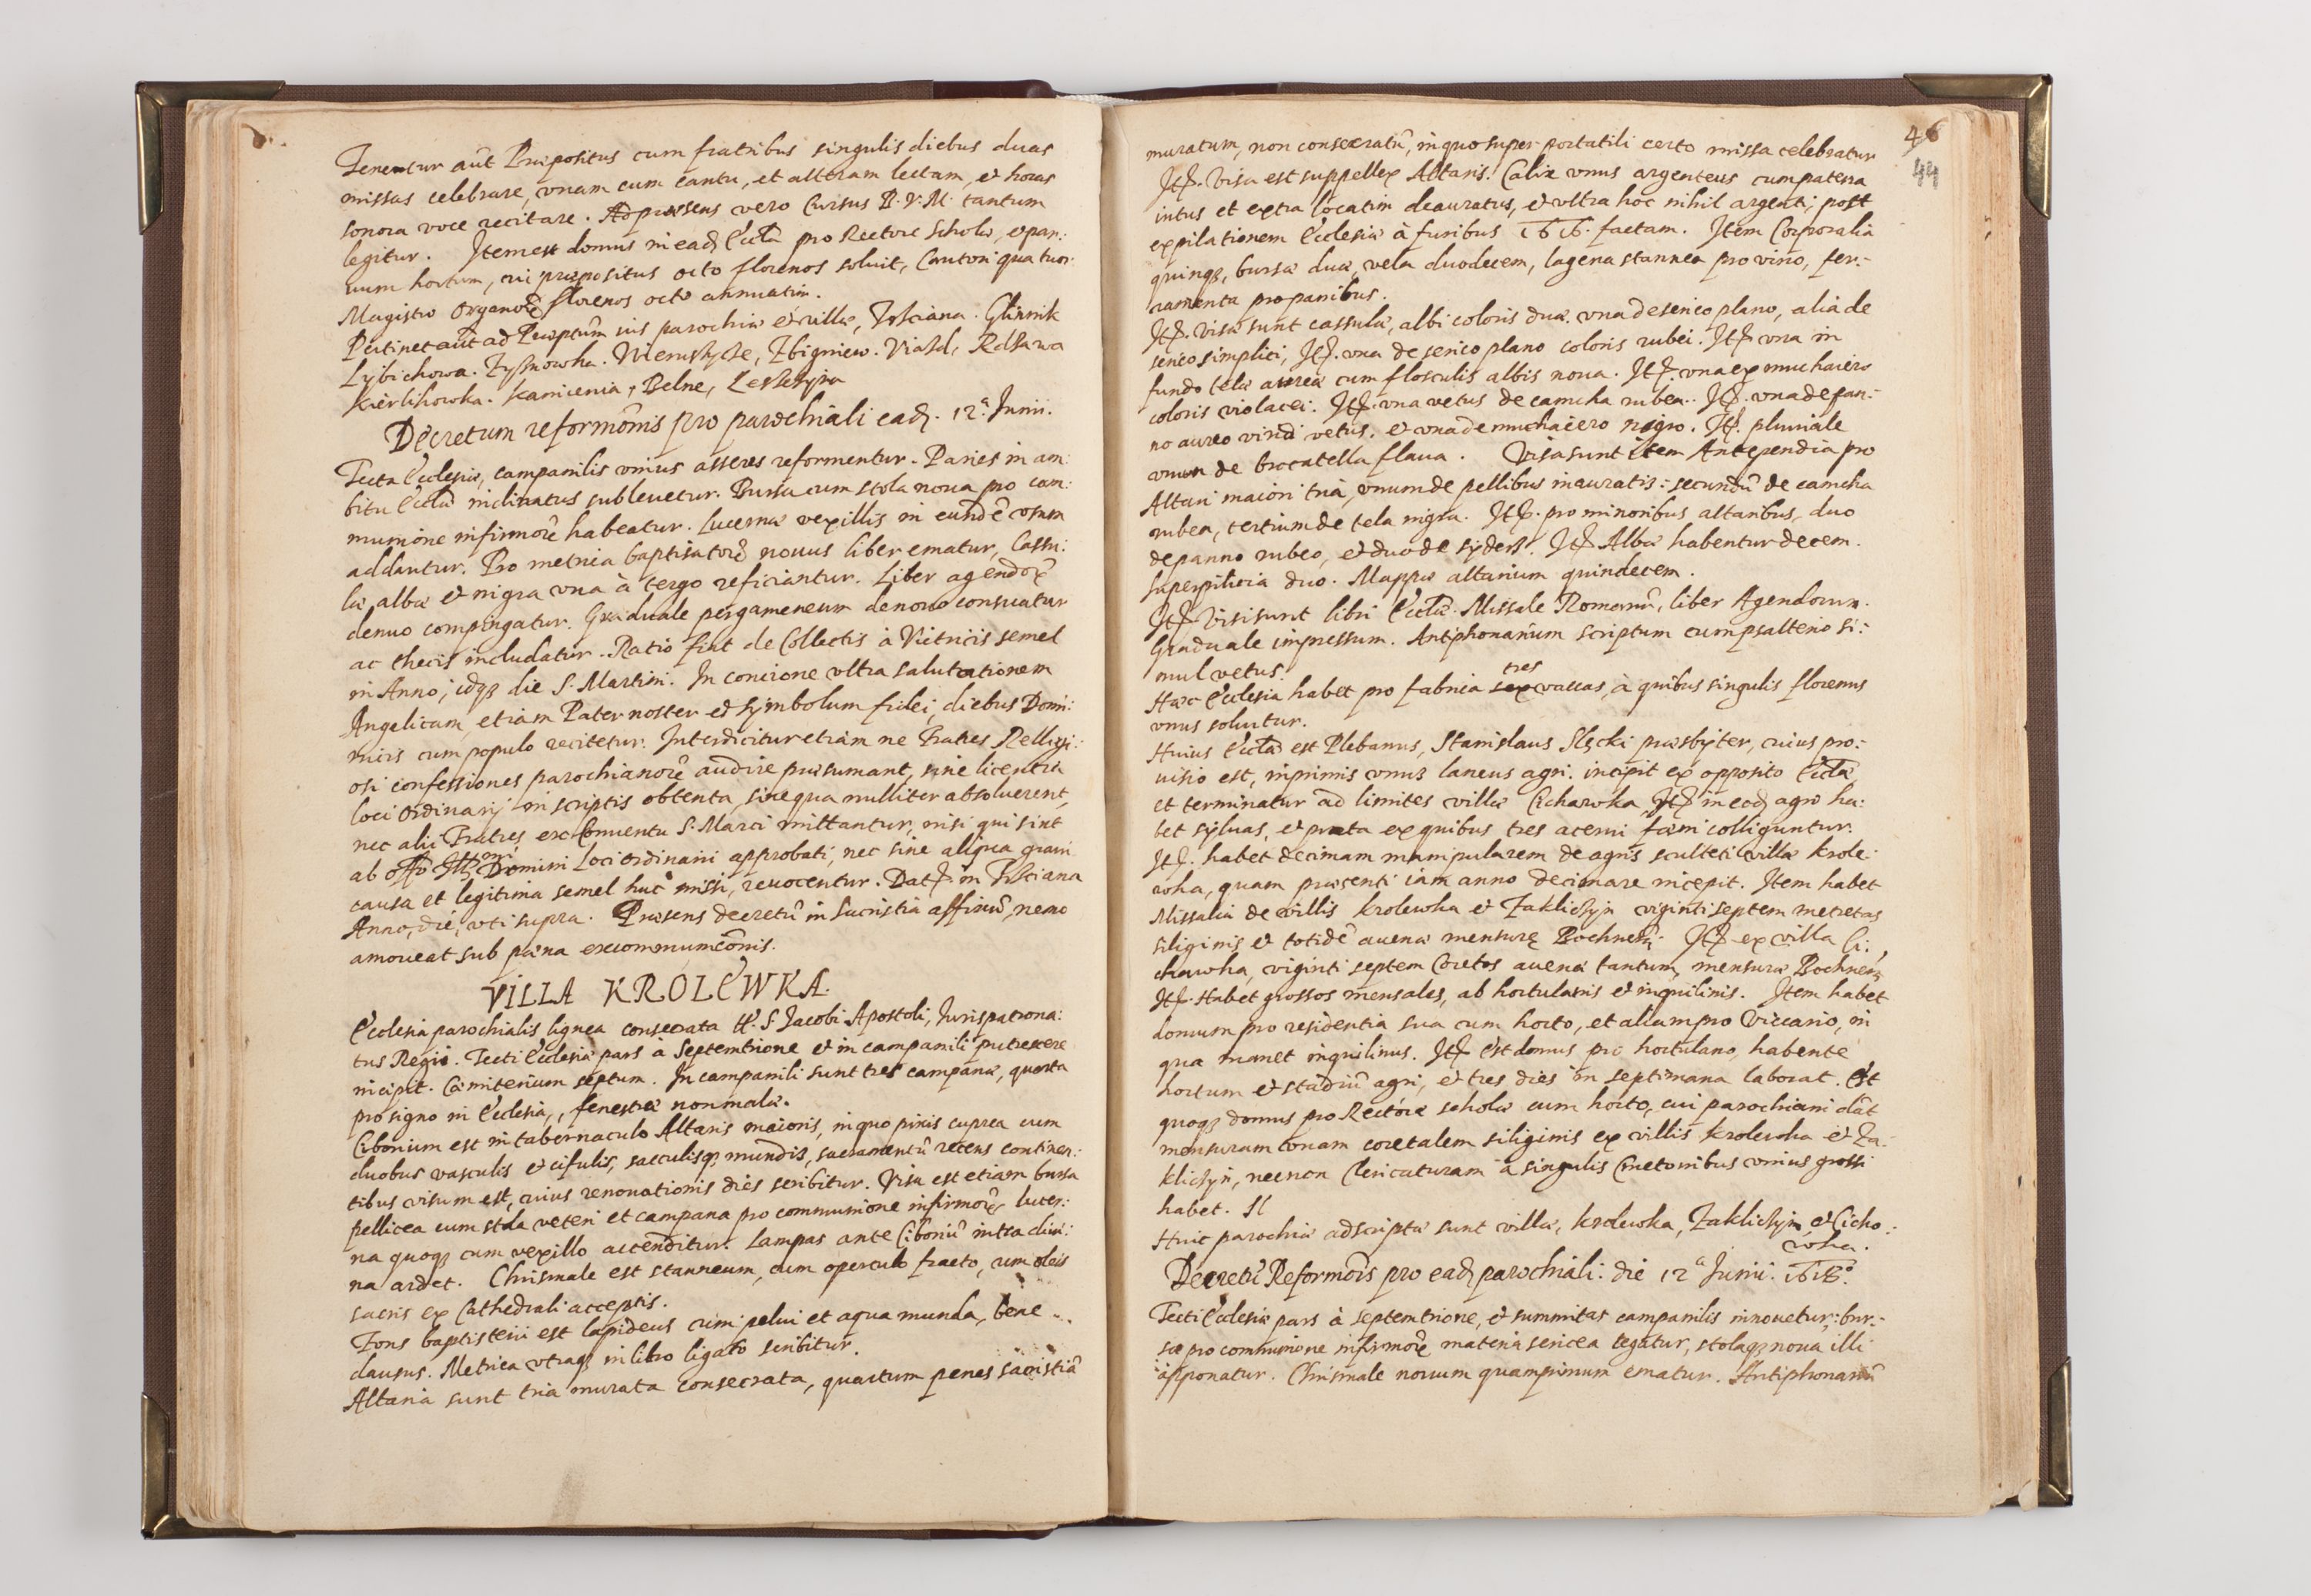 Tenentur aut̄ Præpositus cum fratribus singulis diebus duas
missas celebrare, vnam cum cantu, et alteram lectam, et horas
sonora voce recitare. Ad præsens vero Cursus B. V. M. tantum
legitur. Item est domus in ead. Eccl̄a pro Rectore scholæ, et par:
uum hortum, cui præpositus octo florenos soluit, Cantori quatuor
Magistro Organorū florenos octo annuatim.
Pertinet aut̄ ad Præceptum ius parochiæ et villæ, Trsciana. Glinnik
Lybichowa. Zyßnowka. Wieruszyce, Zbigniew. Viasd, Rdsawa
Kierlikowka. Kamienia, Belne, Leszczyna
Decretum reformōnis pro parochiali ead. 12ª Junii.
Tecta Ecclesiæ, campanilis vnius asseres reformentur. Paries in am:
bitu Eccl̄æ inclinatus subleuetur. Bursa cum stola noua pro com:
munione infirmorū habeatur. Lucernæ vexillis in eundē vsum
addantur. Pro metrica baptisatorū nouus liber ematur, Cassu:
læ albæ et nigra vna à tergo reficiantur. Liber agendorū
denuo compingatur. Graduale pergameneum denuo consuatur
ac thecis includatur. Ratio fiat de Collectis à Vitricis semel
in Anno, idq3 die S. Martini. In concione vltra salutationem
Angelicam, etiam Pater noster et symbolum fidei, diebus Domi:
nicis cum populo recitetur. Interdicitur etiam ne Fratres Religi:
osi confessiones parochianorū audire præsumant, sine licentia
loci Ordinarij in scriptis obtenta, sine qua nulliter absoluerent,
nec alii Fratres ex Conuentu S. Marci mittantur, nisi qui sint
ab offō Illmi Domini Loci Ordinarii approbati, nec sine aliqua graui
causa et legitima semel huc missi, reuocentur. Dat. in Trsciana
Anno, die, vti supra. Præsens decretū in sacristia affixū, nemo
amoueat sub pæna excommunicōnis.
VILLA KROLEWKA.
Ecclesia parochialis lignea consecrata tt. S. Jacobi Apostoli, Iurispatrona:
tus Regii. Tecti Ecclesiæ pars à Septemtrione et in campanili putrescere
incipit. Cæmiterium septum. In campanili sunt tres campanæ, quarta
pro signo in Ecclesia, fenestræ non malæ.
Ciborium est in tabernaculo Altaris maioris, in quo pixis cuprea cum
duobus vasculis et cifulis, sacculisq3 mundis, sacramentū recens continen:
tibus visum est, cuius renouationis dies scribitur. Visa est etiam bursa
pellicea cum stola veteri et campana pro communione infirmorū lucer:
na quoq3 cum vexillo accenditur. Lampas ante Ciboriū intra diui:
na ardet. Chrismale est stanneum, cum operculo fracto, cum oleis
sacris ex Cathedrali acceptis.
Fons baptisterii est lapideus cum pelui et aqua munda, bene
clausus. Metrica vtraq3 in libro ligato scribitur.
Altaria sunt tria murata consecrata, quartum penes sacristiā
46
44
muratum, non consecratū, in quo super portatili certo missa celebratur
It. Visa est suppellex Altaris. Calix vnus argenteus cum patena
intus et extra locatim deauratus, et vltra hoc nihil argenti, post
expilationem Ecclesiæ à furibus 1616. factam. Item Corporalia
quinq3, bursæ duæ, vela duodecem, lagena stannea pro vino, fer:
ramenta pro panibus.
It. visæ sunt cassulæ, albi coloris duæ. vna de serico plano, alia de
serico simplici, It. vna de serico plano coloris rubei. It. vna in
fundo tela aurea cum flosculis albis noua. It. vna ex muchaiero
coloris violacei. It. vna vetus de camcha rubea. It. vna de pan:
no aureo viridi vetus, et vna de muchaiero nigro. It. pluuiale
vnum de brocatella flaua. Visa sunt item Antependia pro
Altari maiori tria, vnum de pellibus inauratis: secundū de camcha
rubea, tertium de tela nigra. It. pro minoribus altaribus, duo
de panno rubeo, et duo de syders. It. Albæ habentur decem.
Superpilicia duo. Mappæ altarium quindecem.
It. Visi sunt libri Eccl̄æ. Missale Romanū, liber Agendorum.
Graduale impressum. Antiphonarium scriptum cum psalterio si:
mul vetus.
Hæc Ecclesia habet pro fabrica sex tres vaccas, à quibus singulis florenus
vnus soluitur.
Huius Eccl̄æ est Plebanus, Stanislaus Slęcki præsbyter, cuius pro:
uisio est, inprimis vnus laneus agri. incipit ex opposito Eccl̄æ
et terminatur ad limites villæ Cichawka. It. in eod. agro ha:
bet syluas, et prata ex quibus tres acerui fæni colliguntur.
It. habet decimam manipularem de agris sculteti villæ Krole:
wka, quam præsenti iam anno decimare incepit. Item habet
Missalia de villis Krolewka et Zakliczyn viginti septem metretas
siliginis et totidē auenæ mensuræ Bochnen. It. ex villa Ci:
chawka, viginti septem Coretos auenæ tantum, mensuræ Bochnen.
It. Habet grossos mensales, ab hortulanis et inquilinis. Item habet
domum pro residentia sua cum horto, et aliam pro Viccario, in
qua manet inquilinus. It. est domus pro hortulano, habente
hortum et stadiū agri, et tres dies in septimana laborat. Est
quoq3 domus pro Rectore scholæ cum horto, cui parochiani dāt
mensuram bonam coretalem siliginis ex villis Krolewka et Za:
kliczyn, necnon Clericaturam à singulis Cmetonibus vnius grossi
habet.
Huic parochiæ adscriptæ sunt villæ, Krolewka, Zakliczyn, et Cicho:
wka.
Decretū Reformōis pro ead. parochiali. die 12ª Junii. 1618º.
Tecti Ecclesiæ pars à septemtrione, et summitas campanilis innouetur: bur:
sæ pro communione infirmorū materia sericea tegatur, stolaq3 noua illi
apponatur. Chrismale nouum quamprimum ematur. Antiphonariū